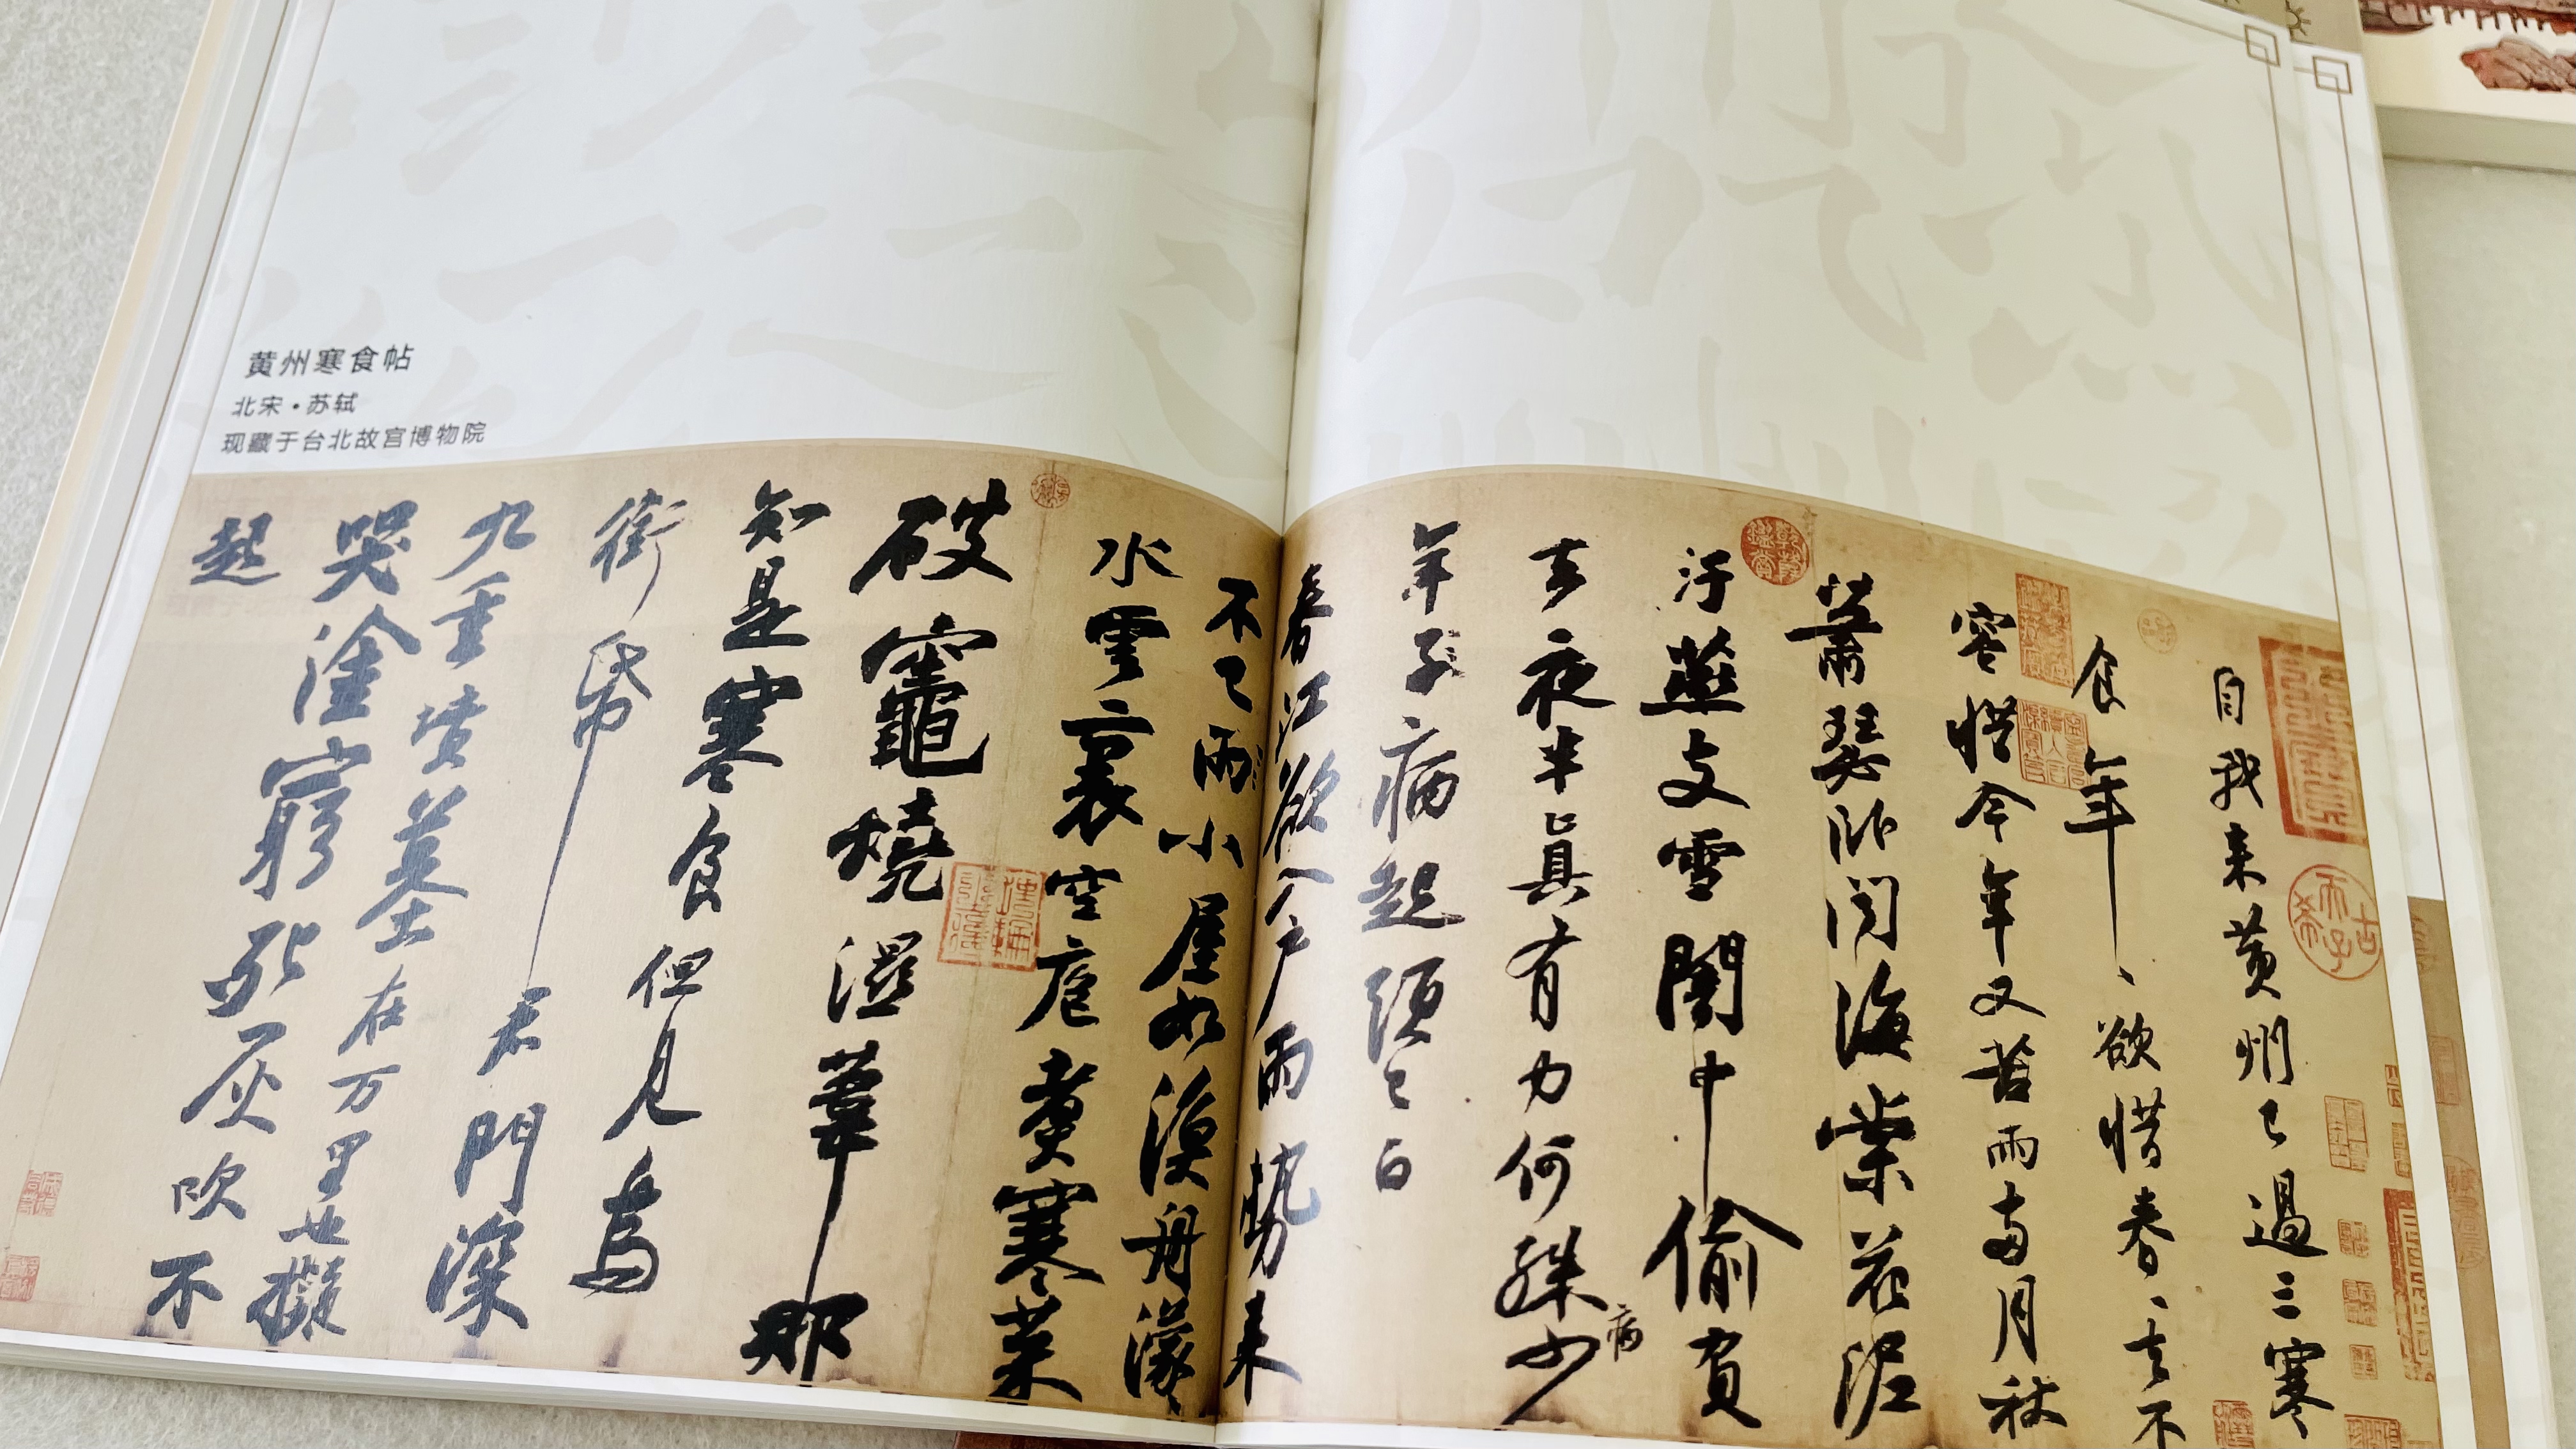 黄州寒食帖
北宋·苏轼
现藏于台北故宫博物院
自我来黄州已過三寒
食年ヽ欲惜春ヽ去不
容惜今年又苦雨两月秋
蕭瑟卧闻海棠花泥
汙燕支雪闇中偷負
去夜半真有力何殊少
病
年子病起須已白
春江欲入户雨勢来
不已雨小屋如漁舟濛ヽ
水雲裏空庖煮寒菜
破竈燒濕葦那
知是寒食但见烏
銜帋君門深
九重墳墓在万里也擬
哭塗窮死灰吹不
起
古希天子
乾隆鑑賞